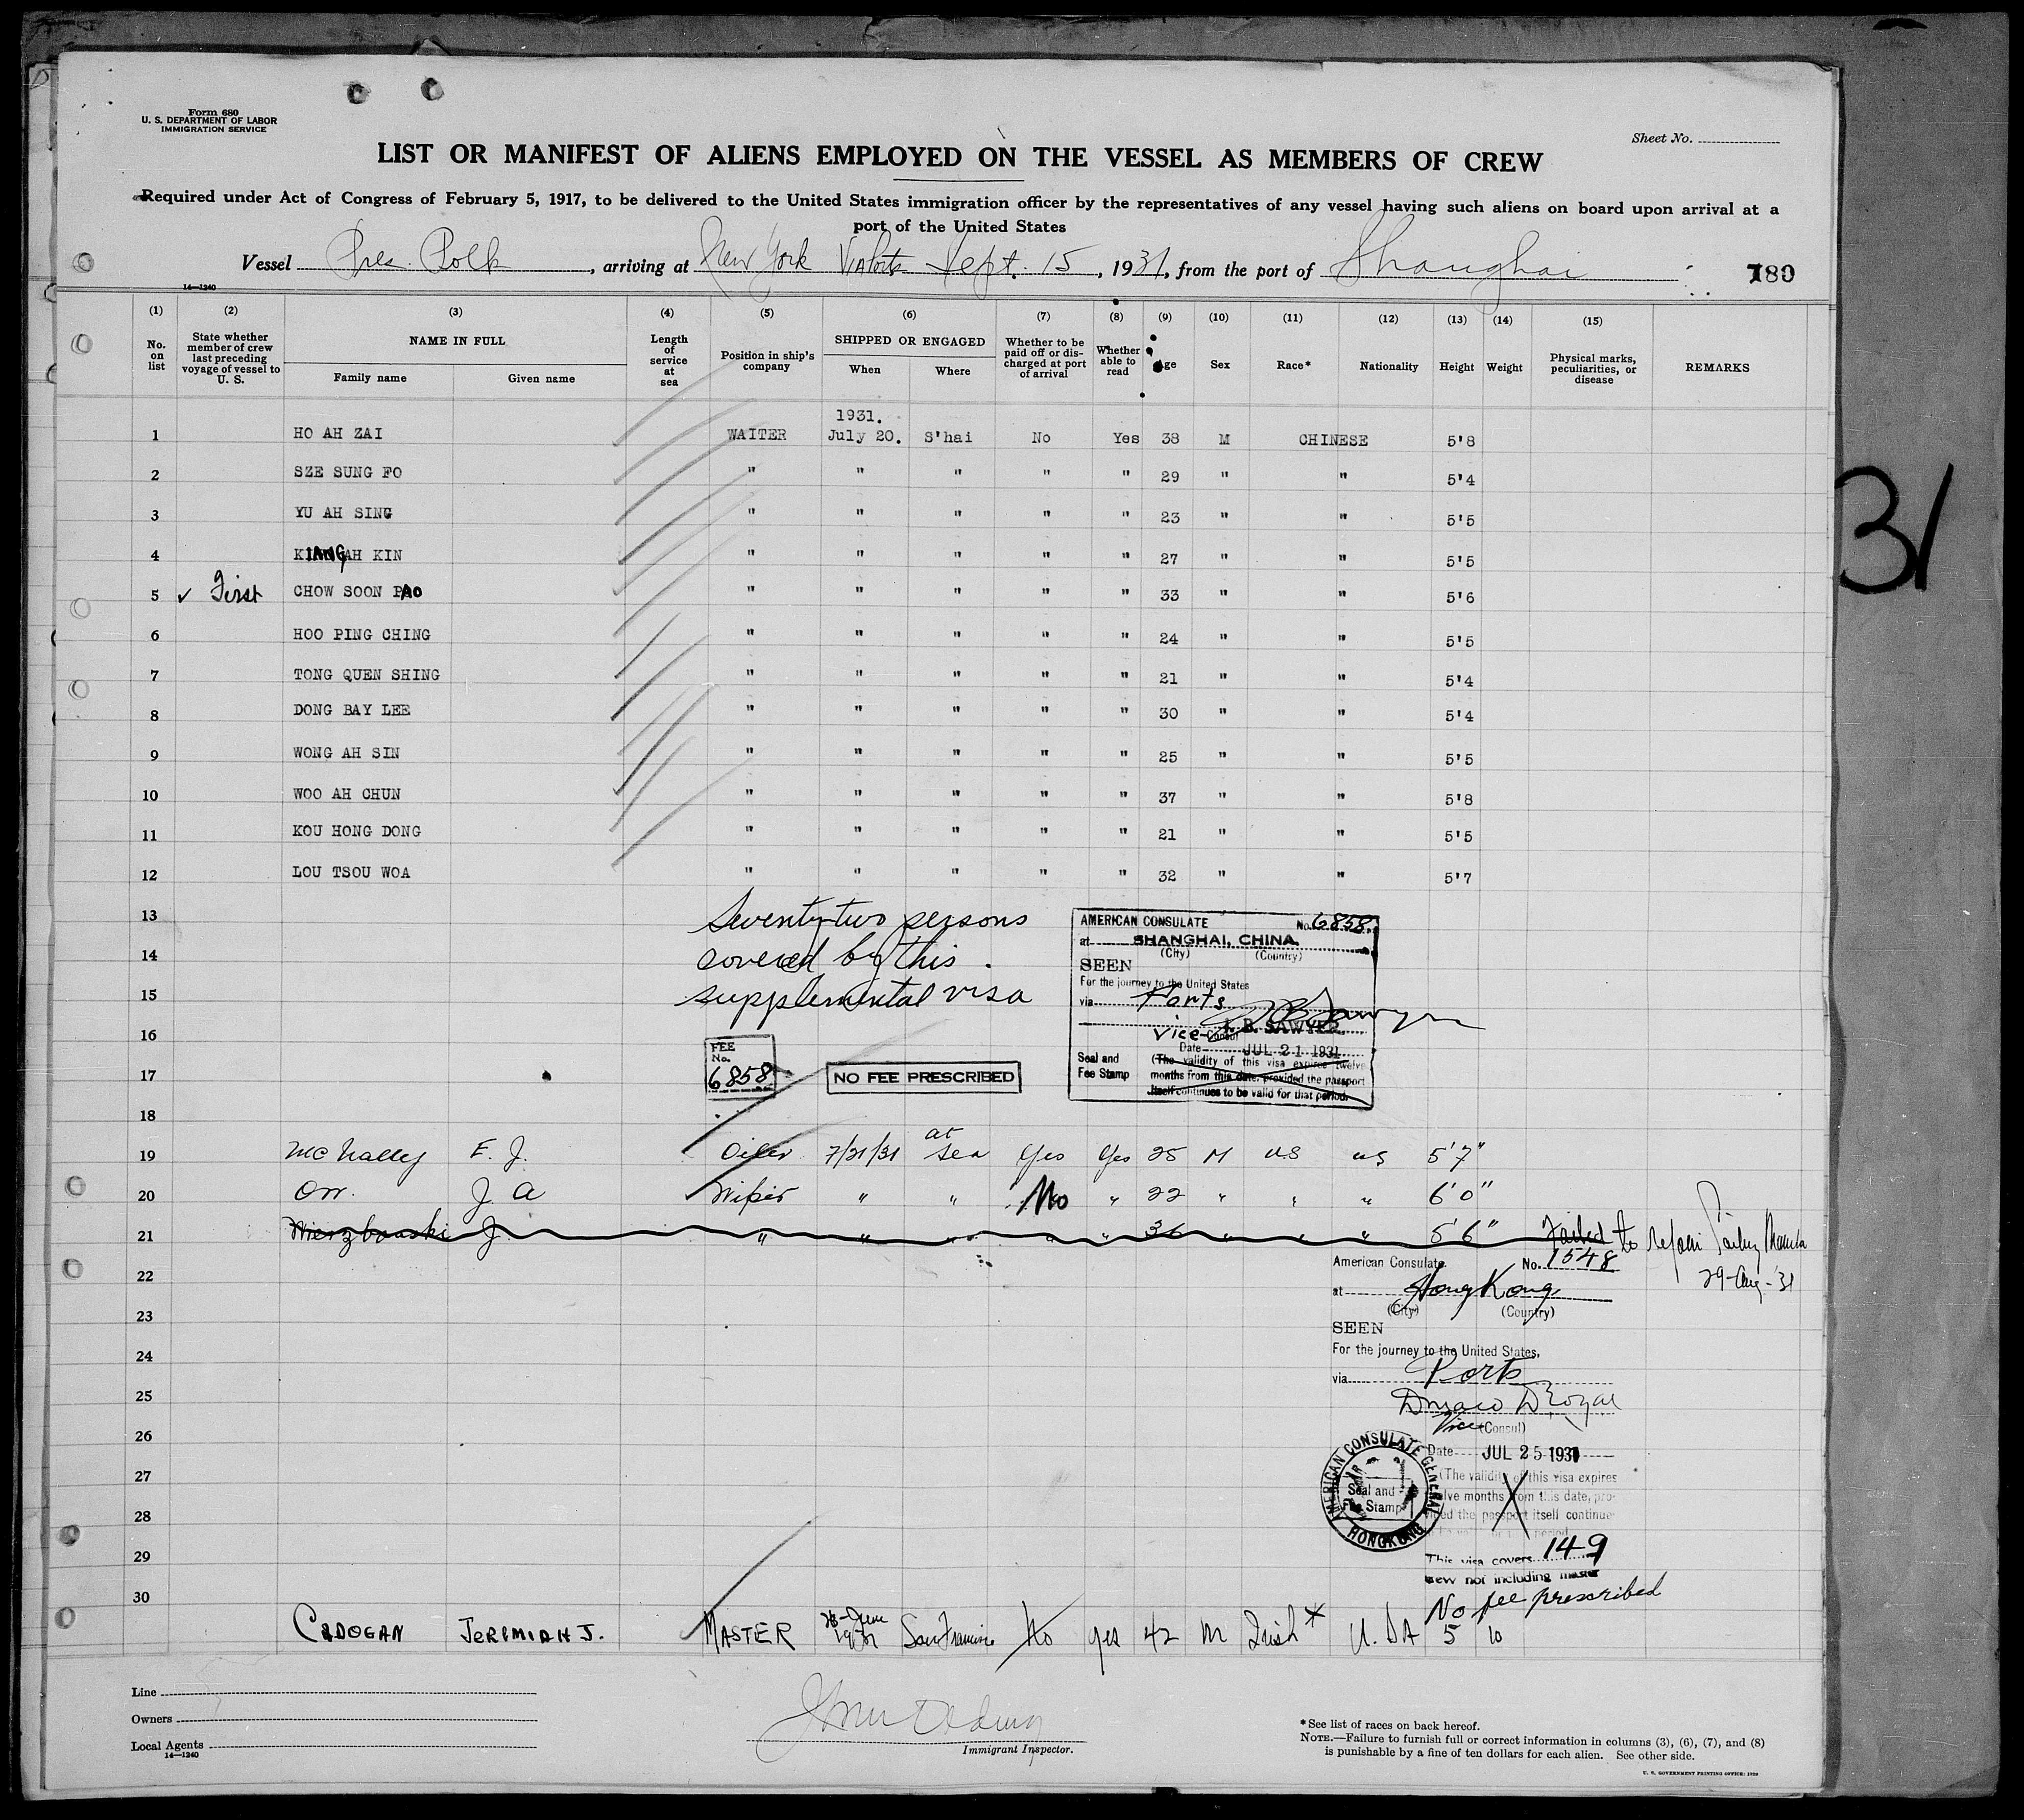 Form 680
U. S. DEPARTMENT OF LABOR
IMMIGRATION SERVICE
Sheet No.
LIST OR MANIFEST OF ALIENS EMPLOYED ON THE VESSEL AS MEMBERS OF CREW
Required under Act of Congress of February 5, 1917, to be delivered to the United States immigration officer by the representatives of any vessel having such aliens on board upon arrival at a
port of the United States
Vessel Pres. Polk, arriving at New York Via Ports Sept. 15, 1931, from the port of Shanghai 780
14—1240
(1) (2) (3) (4) (5) (6) (7) (8) (9) (10) (11) (12) (13) (14) (15)
No. on list
State whether member of crew last preceding voyage of vessel to U. S.
NAME IN FULL
Family name Given name
Length of service at sea
Position in ship's company
SHIPPED OR ENGAGED
When Where
Whether to be paid off or discharged at port of arrival
Whether able to read
Age
Sex
Race*
Nationality
Height
Weight
Physical marks, peculiarities, or disease
REMARKS
1931.
1 HO AH ZAI WAITER July 20. S'hai No Yes 38 M CHINESE 5'8
2 SZE SUNG FO " " " " " 29 " " 5'4
3 YU AH SING " " " " " 23 " " 5'5
4 KIANG AH KIN " " " " " 27 " " 5'5
5 ✓ First CHOW SOON PAO " " " " " 33 " " 5'6
6 HOO PING CHING " " " " " 24 " " 5'5
7 TONG QUEN SHING " " " " " 21 " " 5'4
8 DONG BAY LEE " " " " " 30 " " 5'4
9 WONG AH SIN " " " " " 25 " " 5'5
10 WOO AH CHUN " " " " " 37 " " 5'8
11 KOU HONG DONG " " " " " 21 " " 5'5
12 LOU TSOU WOA " " " " " 32 " " 5'7
13
14
15
16
17
18
Seventy-two persons
covered by this
supplemental visa
FEE
No.
6858
NO FEE PRESCRIBED
AMERICAN CONSULATE No. 6858
at SHANGHAI, CHINA.
(City) (Country)
SEEN
For the journey to the United States
via Ports
J. B. SAWYER
Vice Consul
Date JUL 21 1931
Seal and
Fee Stamp
(The validity of this visa expires twelve
months from this date, provided the passport
itself continues to be valid for that period.
19 McNalley E. J. Oiler 7/21/31 at Sea Yes Yes 25 M US US 5'7"
20 Orr. J A Wiper " " No " 22 " " " 6'0"
21 Wierzbowski J. " " " " " 36 " " " 5'6" Failed to rejoin Manila
29-Aug-'31
22
23
24
25
26
27
28
29
30
American Consulate No. 1548
at Hong Kong
(City) (Country)
SEEN
For the journey to the United States,
via Ports
Vice (Consul)
Date JUL 25 1931
AMERICAN CONSULATE GENERAL
HONGKONG
Seal and
Fee Stamp
(The validity of this visa expires
twelve months from this date, pro-
vided the passport itself continue
This visa covers 149
crew not including master
No fee prescribed
CADOGAN JEREMIAH J. MASTER June San Francisco No Yes 42 M Irish* U.S.A 5 10
Line
Owners
Local Agents
14—1240
Immigrant Inspector.
*See list of races on back hereof.
NOTE.—Failure to furnish full or correct information in columns (3), (6), (7), and (8)
is punishable by a fine of ten dollars for each alien. See other side.
U. S. GOVERNMENT PRINTING OFFICE: 1929
31